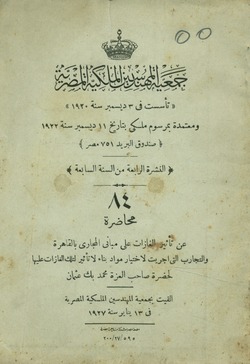 جمعية المهندسين الملكية المصرية
« تأسست في ٣ ديسمبر سنة ١٩٢٠ »
ومعتمدة بمرسوم ملكي بتاريخ ١١ ديسمبر سنة ١٩٢٢
﴿ صندوق البريد ٧٥١ مصر ﴾
﴿ النشرة الرابعة من السنة السابعة ﴾
٨٤
محاضرة
عن تأثير الغازات على مباني المجاري بالقاهرة
والتجارب التي أجريت لاختيار مواد بناء لا تأثير لتلك الغازات عليها
لحضرة صاحب العزة محمد بك عثمان
ألقيت بجمعية المهندسين الملكية المصرية
في ١٣ يناير سنة ١٩٢٧